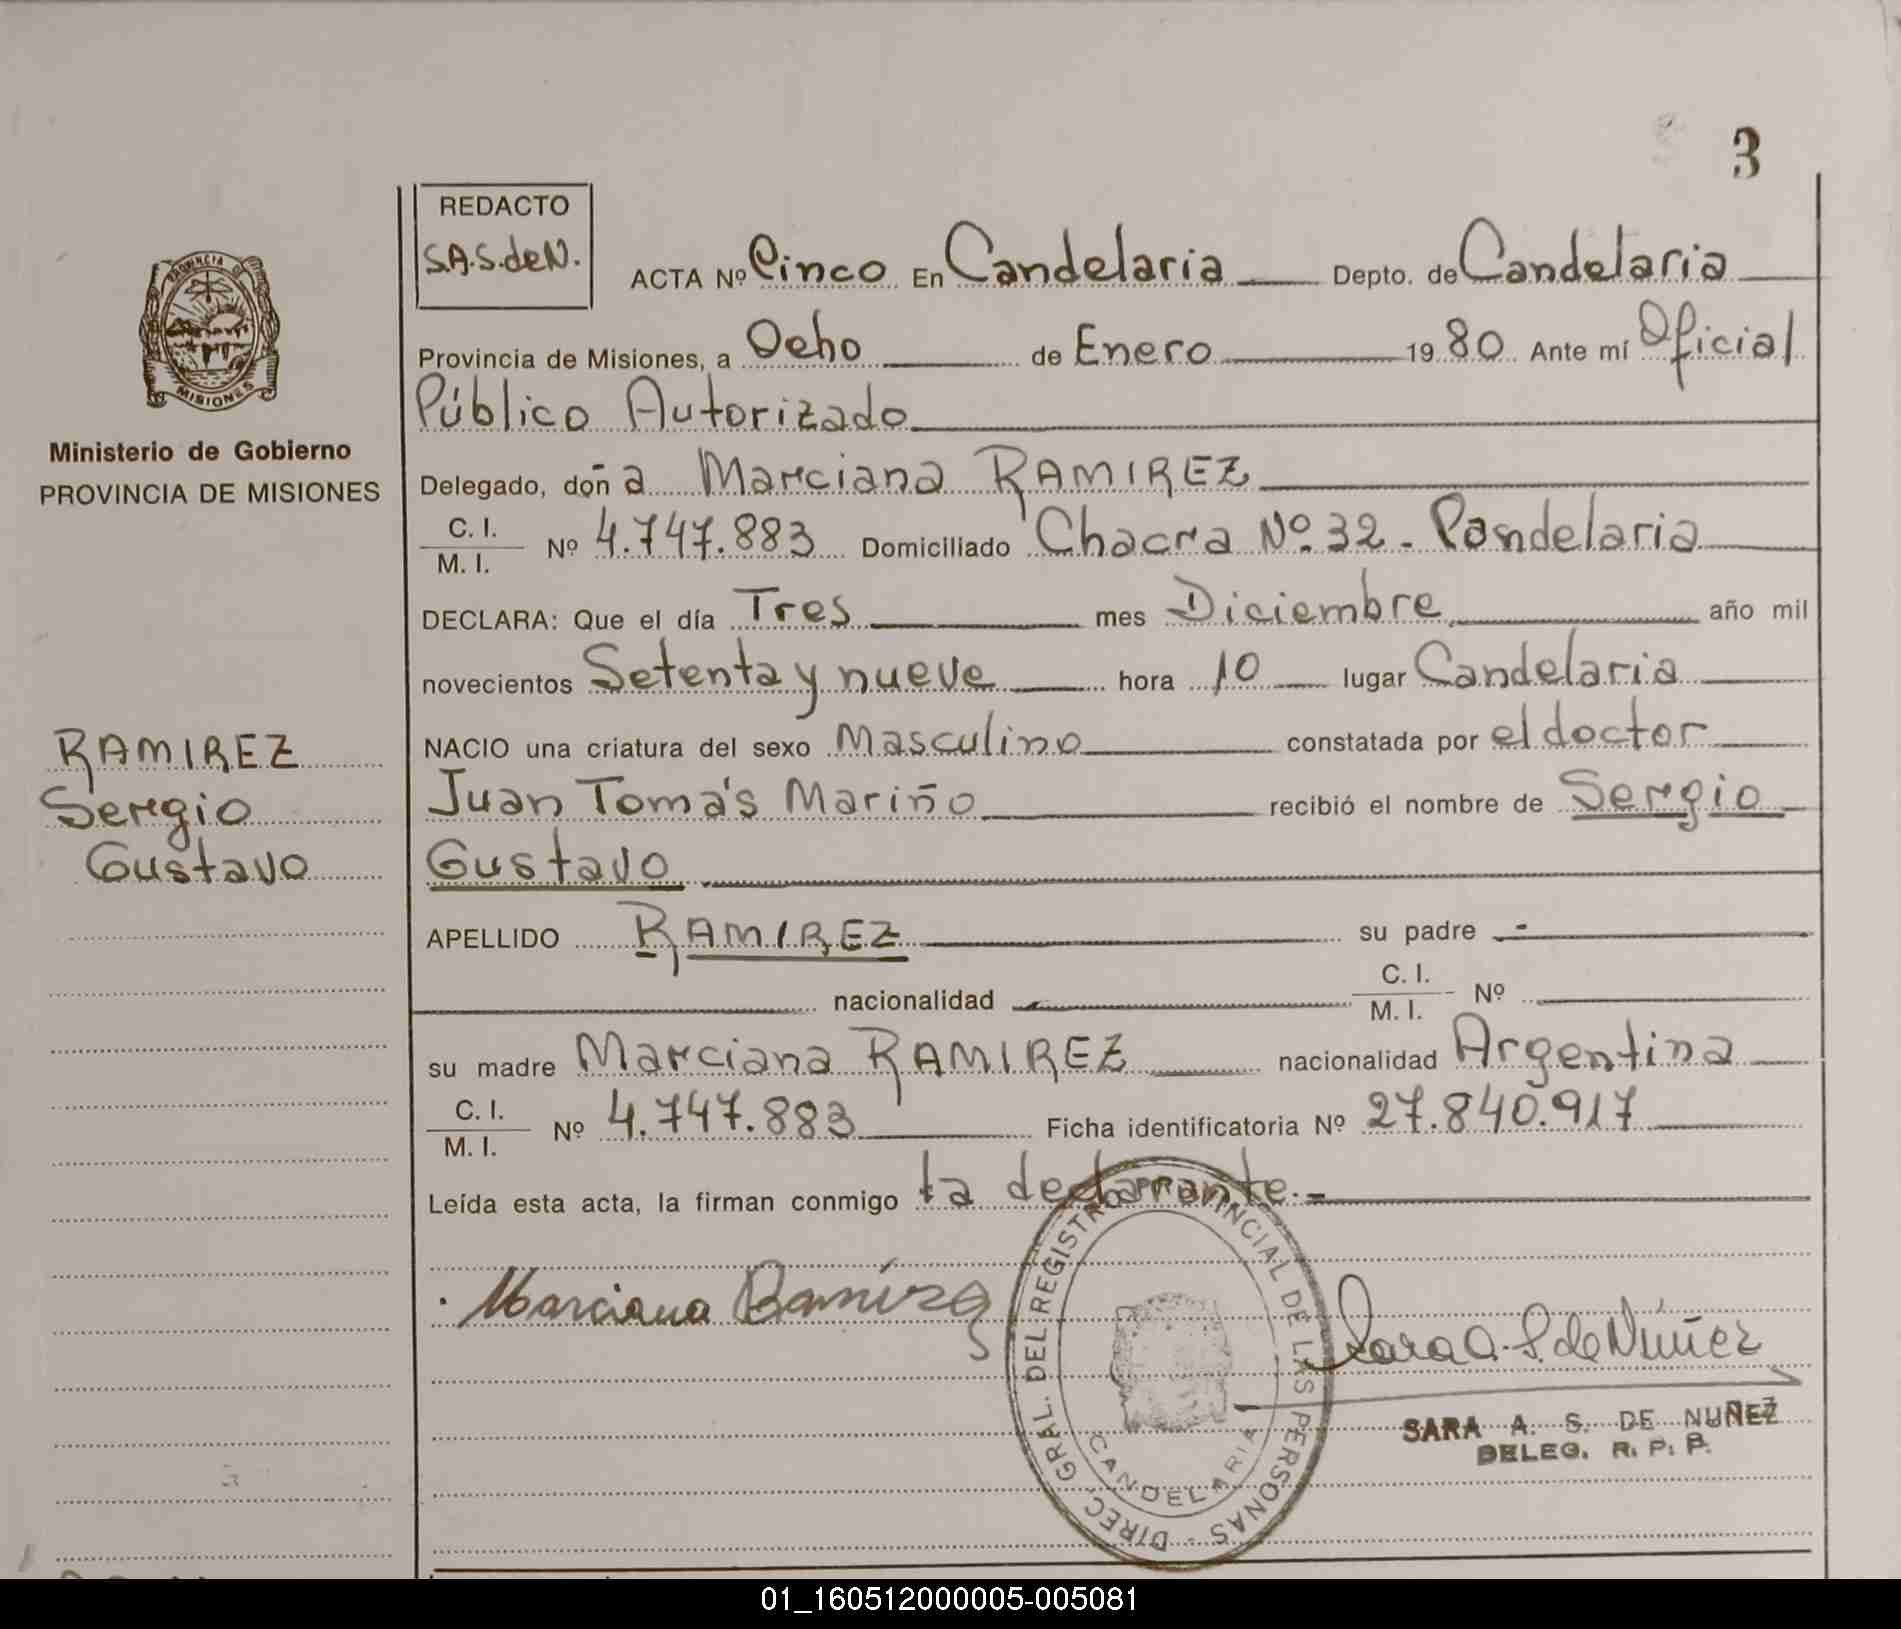 3
REDACTO
S.A.S.deN.
PROVINCIA DE
MISIONES
Ministerio de Gobierno
PROVINCIA DE MISIONES
ACTA Nº Cinco En Candelaria Depto. de Candelaria
Provincia de Misiones, a Ocho de Enero 1980 Ante mí Oficial
Público Autorizado
Delegado, doña Marciana RAMIREZ
C. I.
M. I. Nº 4.747.883 Domiciliado Chacra Nº 32 - Candelaria
DECLARA: Que el día Tres mes Diciembre año mil
novecientos Setenta y nueve hora 10 lugar Candelaria
NACIO una criatura del sexo Masculino constatada por el doctor
Juan Tomás Mariño recibió el nombre de Sergio
Gustavo
APELLIDO RAMIREZ su padre -
nacionalidad C. I.
M. I. Nº
su madre Marciana RAMIREZ nacionalidad Argentina
C. I.
M. I. Nº 4.747.883 Ficha identificatoria Nº 27.840.917
Leída esta acta, la firman conmigo la declarante.-
RAMIREZ
Sergio
Gustavo
Marciana Ramírez
Sara A. S. de Núñez
SARA A. S. DE NUÑEZ
DELEG. R. P. P.
DIREC. GRAL. DEL REGISTRO PROVINCIAL DE LAS PERSONAS -
CANDELARIA
01_160512000005-005081